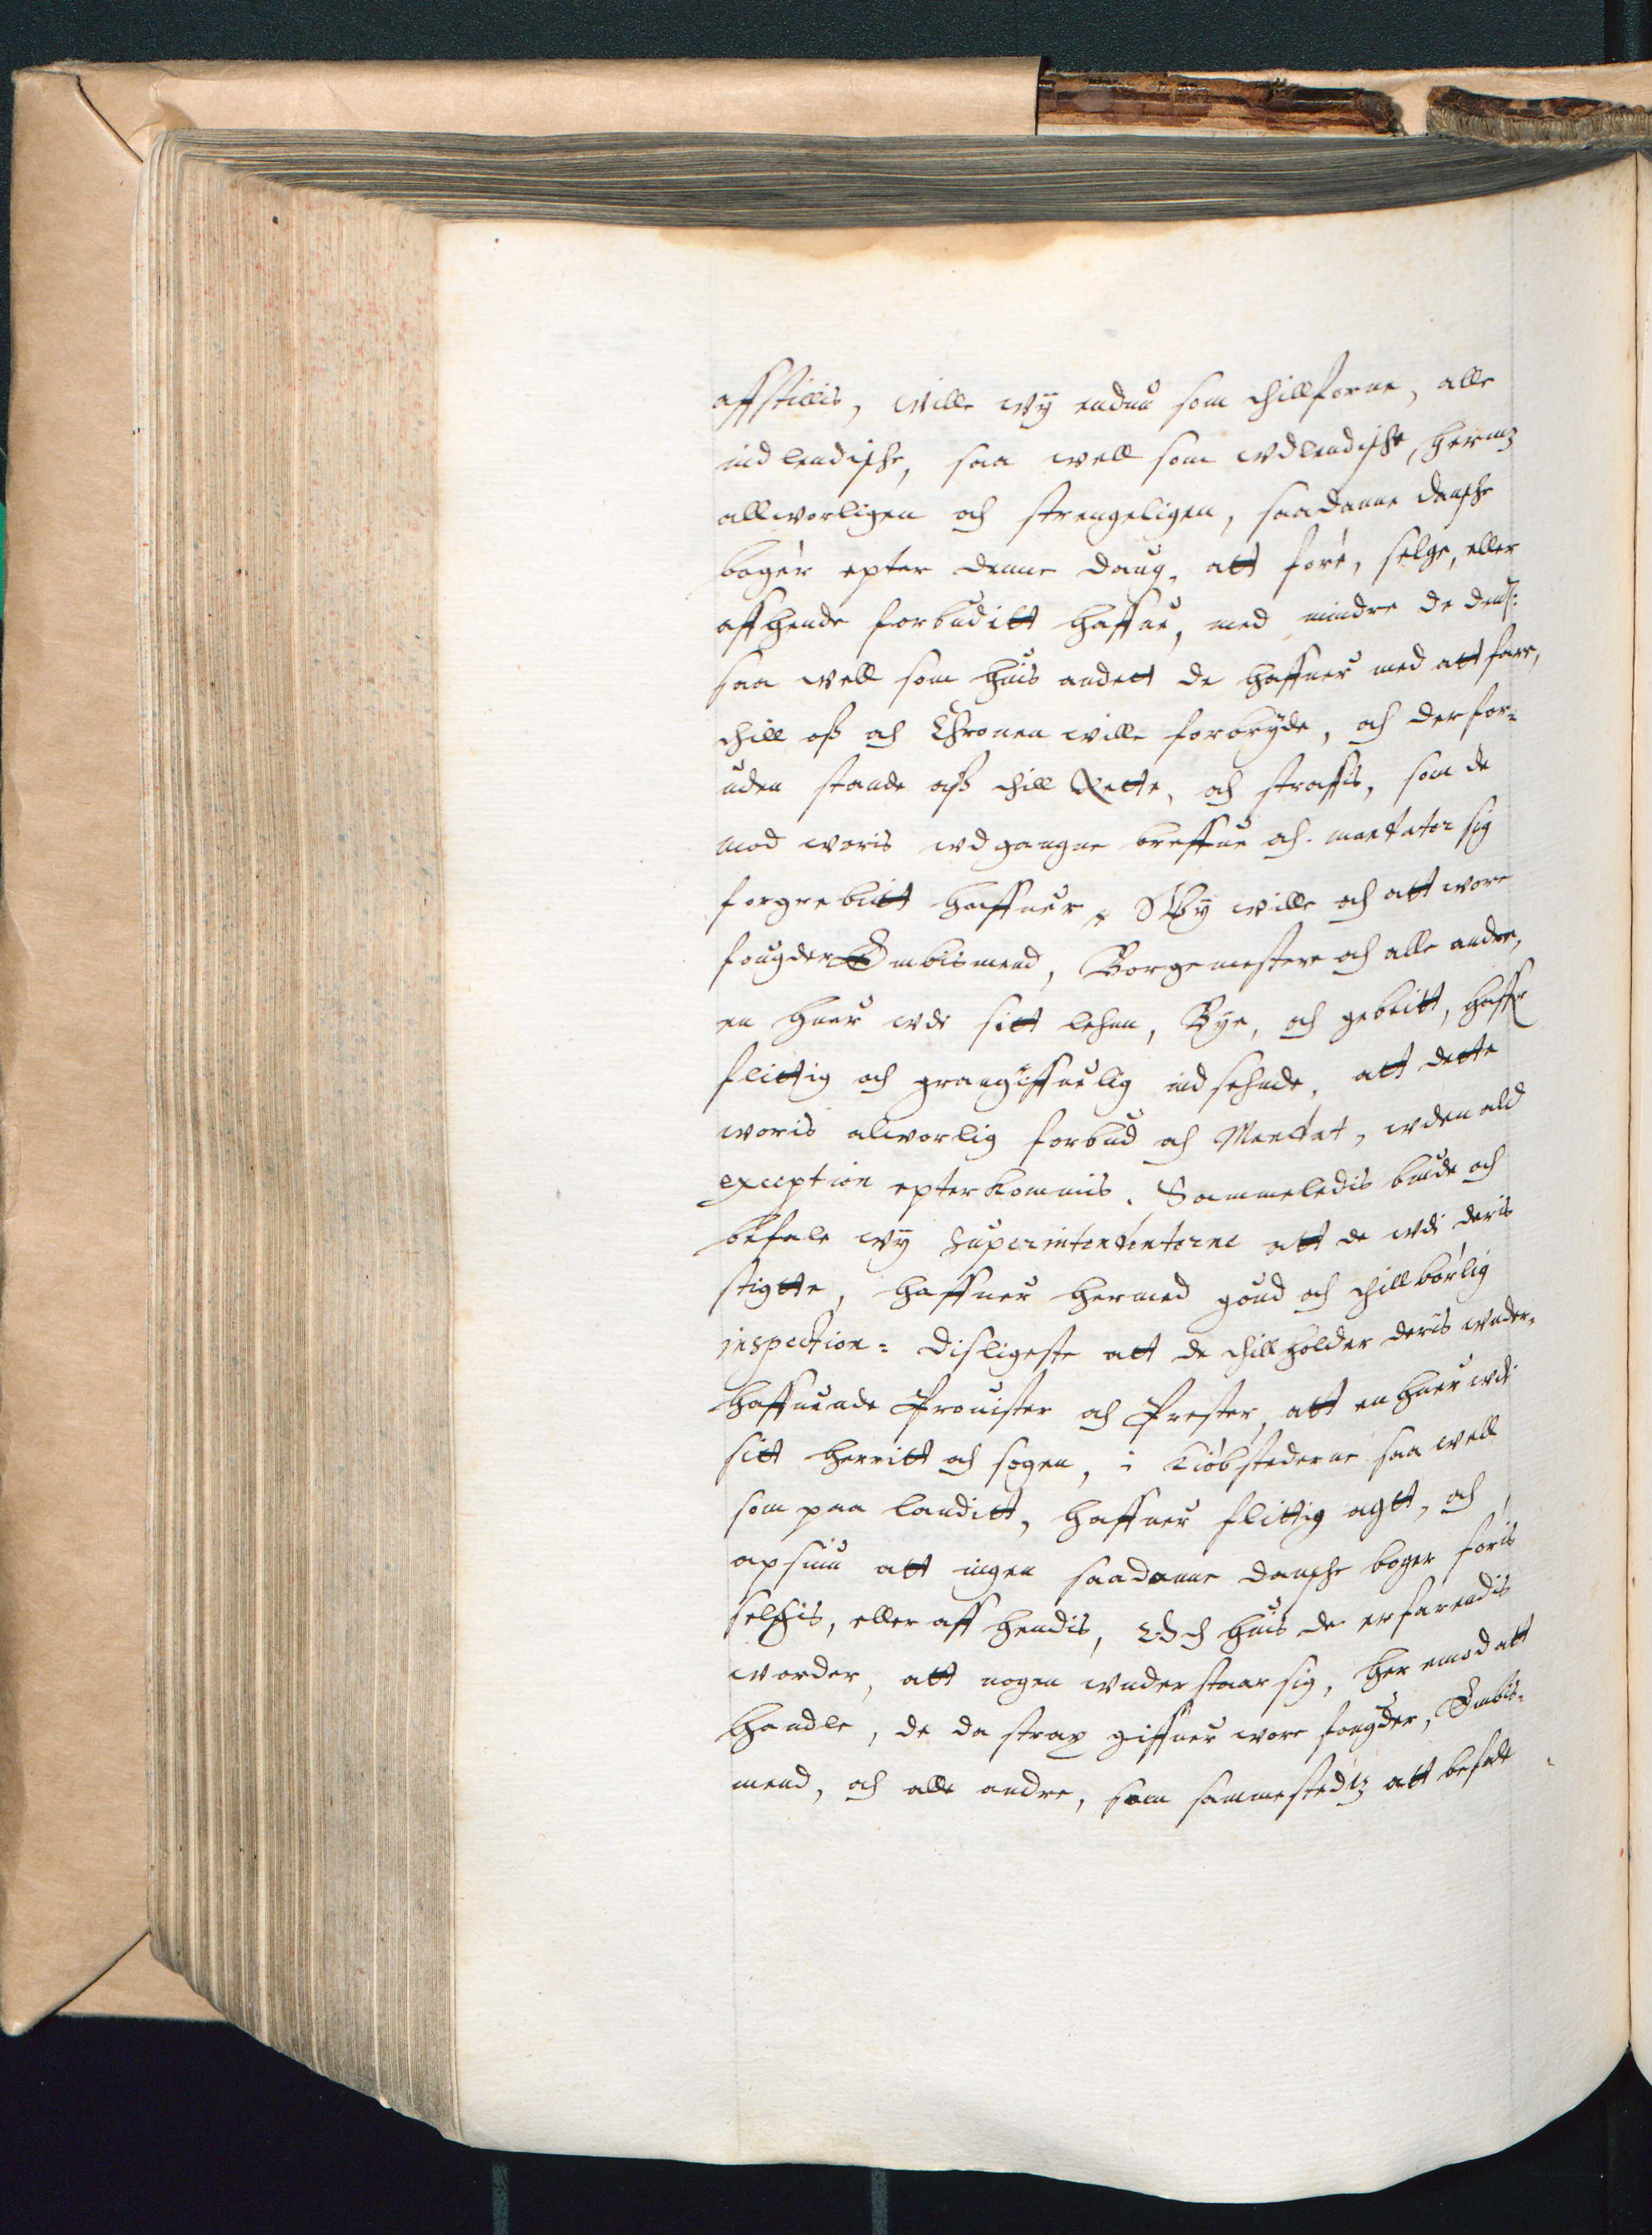 affstillis, wille wy endnu som thillforne, alle
indlendische, saa well som wdlendische, hermz
allworligen och strengeligen, saadanne dansche
bøger epter denne daug, att føre, selge, eller
affhende forbuditt haffue, med mindre de dens:
saa well som huis andett de haffuer med att fare,
thill oss och Chronen wille forbryde, och der for¬
uden stande oss thill Rette, och straffis, som de
mod woris wdgangne breffue och mandater sig
forgrebitt haffuer, Wy wille och att wore
fougder Embismend, Borgemestere och alle andre,
en huer wdi sitt lehnn, Bye, och gebeitt, haffr
flittig och grangiffuelig indsehnde, att dette
woris alworlig forbud och Mandat, wden ald
exception epterkommis. Sammeledis biude och
befale wy Superintendenterne att de wdi deris
stigtte, haffuer hermed goud och thillbørlig
inspection: Disligeste att de thillholder deris wnder¬
haffuende Prouister och Prester, att en huer wdi
sitt herritt och sogen, i Kiøbstederne saa well
som paa landitt, haffuer flittig agtt, och
opsiun att ingen saadanne dansche bøger føris
selgis, eller affhendis, Och huis de erfarendis
worder, att nogen wnderstaar sig, her emod att
handle, de da strax giffuer wore fougder, Embis¬
mend, och alle andre, som sammestedtz att befale